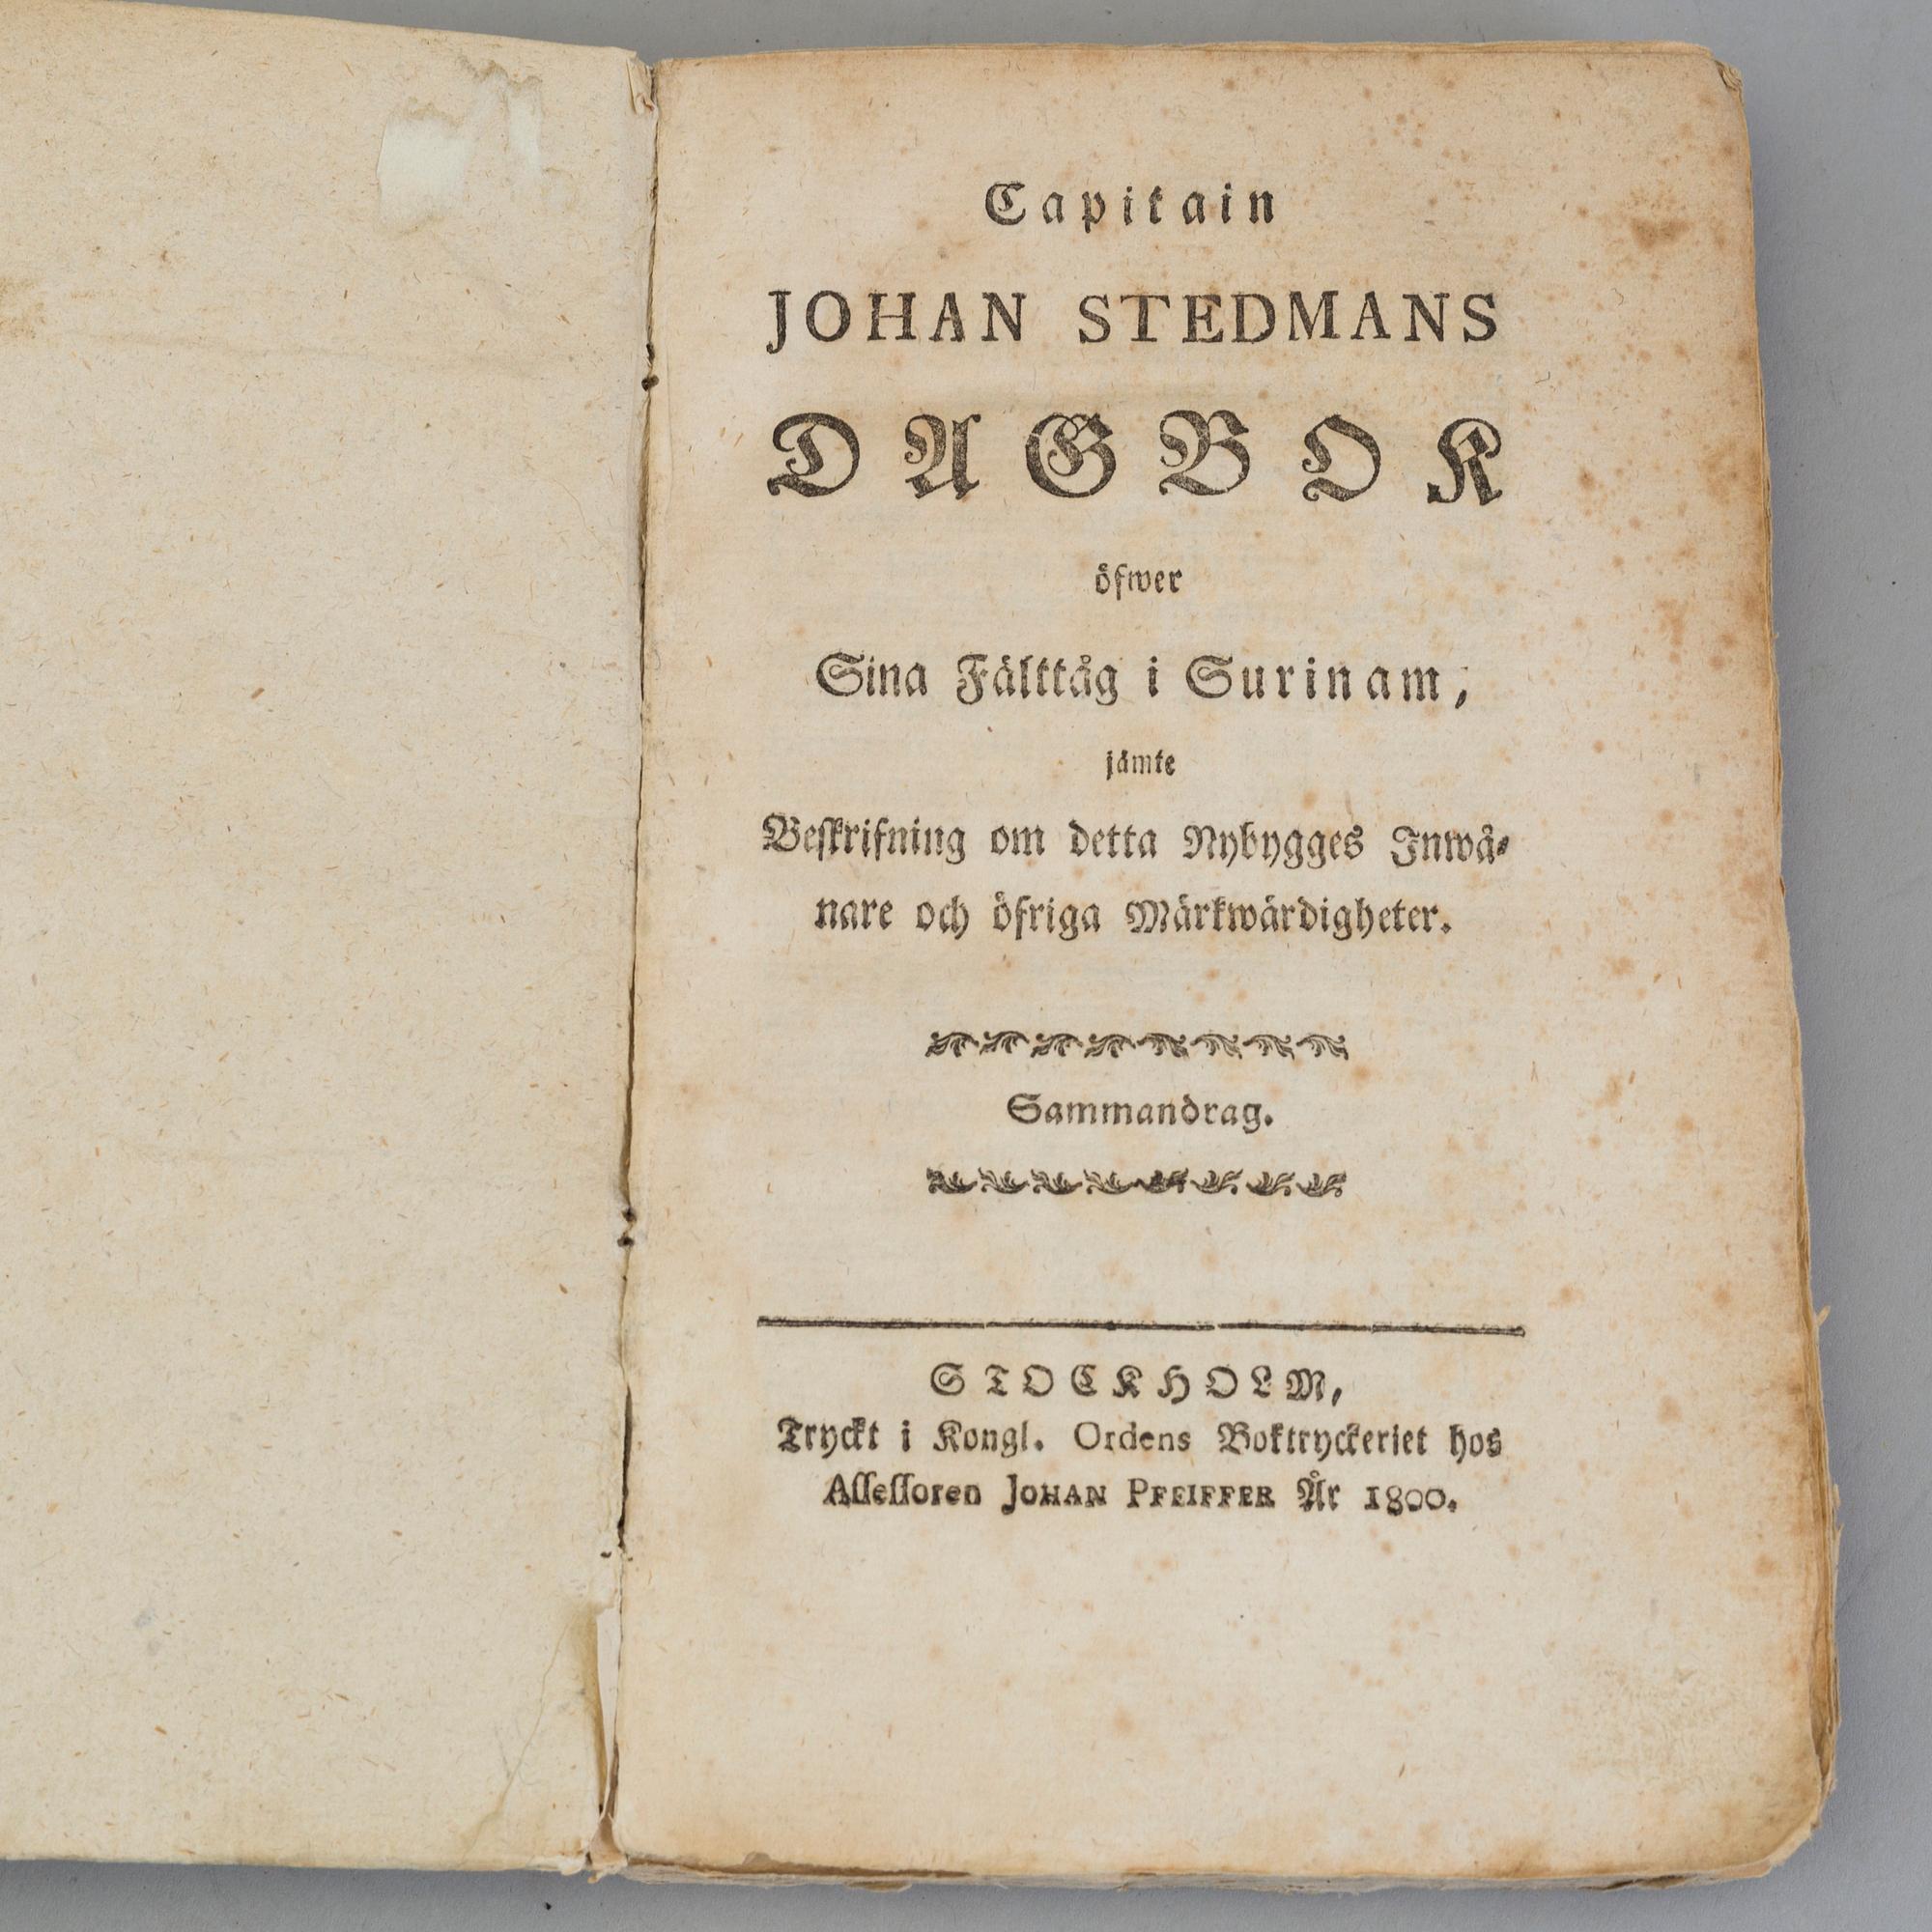 Capitain
JOHAN STEDMANS
DAGBOK
öfwer
Sina Fälttåg i Surinam,
jämte
Beſkrifning om detta Nybygges Inwå-
nare och öfriga Märkwärdigheter.
Sammandrag.
STOCKHOLM,
Tryckt i Kongl. Ordens Boktryckeriet hos
Aſſeſſoren JOHAN PFEIFFER År 1800.